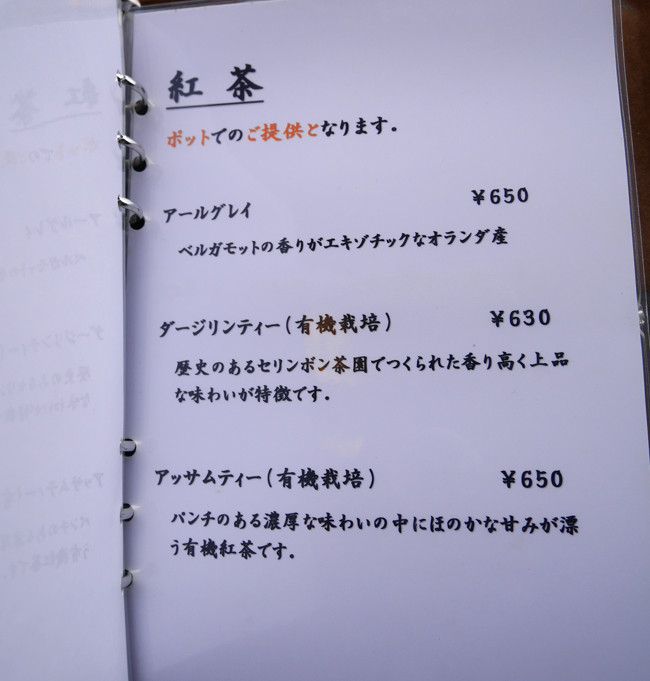 紅茶
ポットでのご提供となります。
アールグレイ ¥650
ベルガモットの香りがエキゾチックなオランダ産
ダージリンティー(有機栽培) ¥630
歴史のあるセリンボン茶園でつくられた香り高く上品
な味わいが特徴です。
アッサムティー(有機栽培) ¥650
パンチのある濃厚な味わいの中にほのかな甘みが漂
う有機紅茶です。